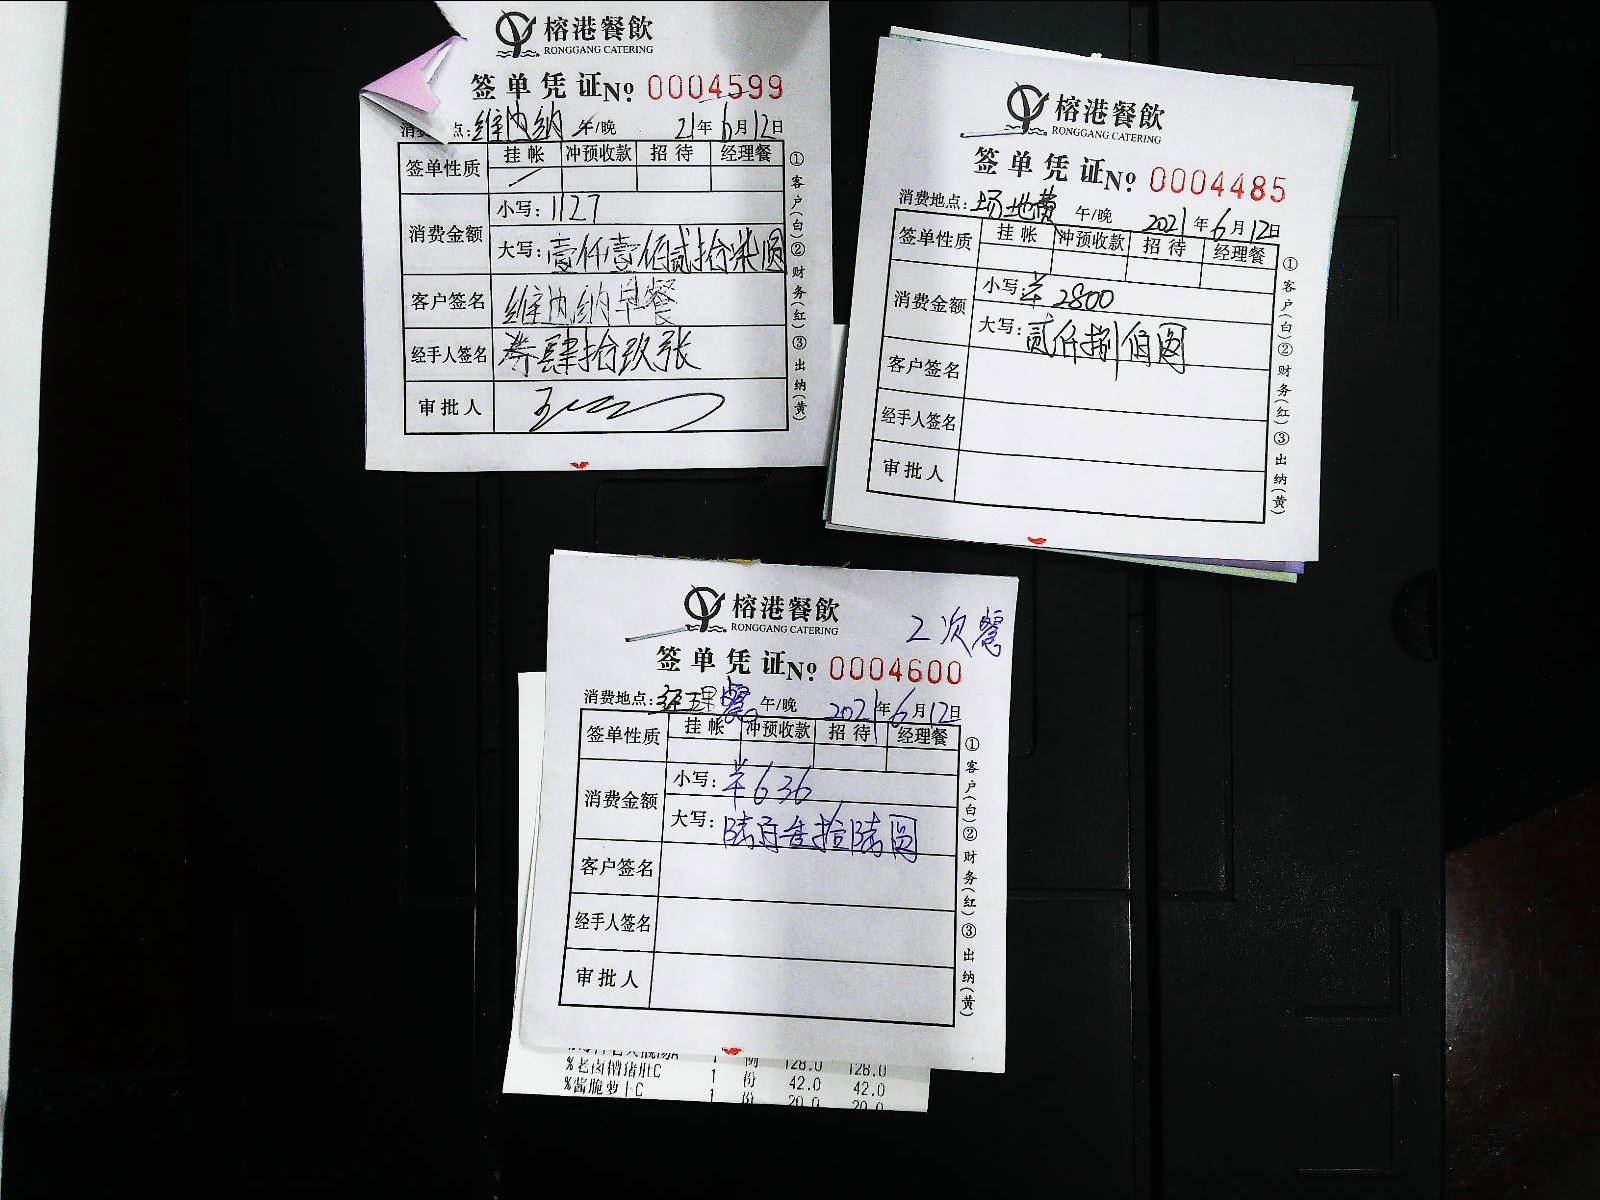 榕港餐飲
RONGGANG CATERING
签单凭证No. 0004599
消 点: 维也纳 午/晚 21年6月12日
签单性质 挂帐 冲预收款 招待 经理餐
消费金额 小写: 1127
大写: 壹仟壹佰贰拾柒圆
客户签名 维也纳早餐
经手人签名 肆拾玖张
审批人
①客户(白)②财务(红)③出纳(黄)
榕港餐飲
RONGGANG CATERING
签单凭证No. 0004485
消费地点: 场地费 午/晚 2021年6月12日
签单性质 挂帐 冲预收款 招待 经理餐
消费金额 小写: ¥2800
大写: 贰仟捌佰圆
客户签名
经手人签名
审批人
①客户(白)②财务(红)③出纳(黄)
榕港餐飲
RONGGANG CATERING
2次餐
签单凭证No. 0004600
消费地点: 经理餐 午/晚 2021年6月12日
签单性质 挂帐 冲预收款 招待 经理餐
消费金额 小写: ¥636
大写: 陆百叁拾陆圆
客户签名
经手人签名
审批人
①客户(白)②财务(红)③出纳(黄)
1 例 128.0 128.0
%老卤糟猪肚C 1 份 42.0 42.0
%酱脆萝卜C 1 份 20.0 20.0